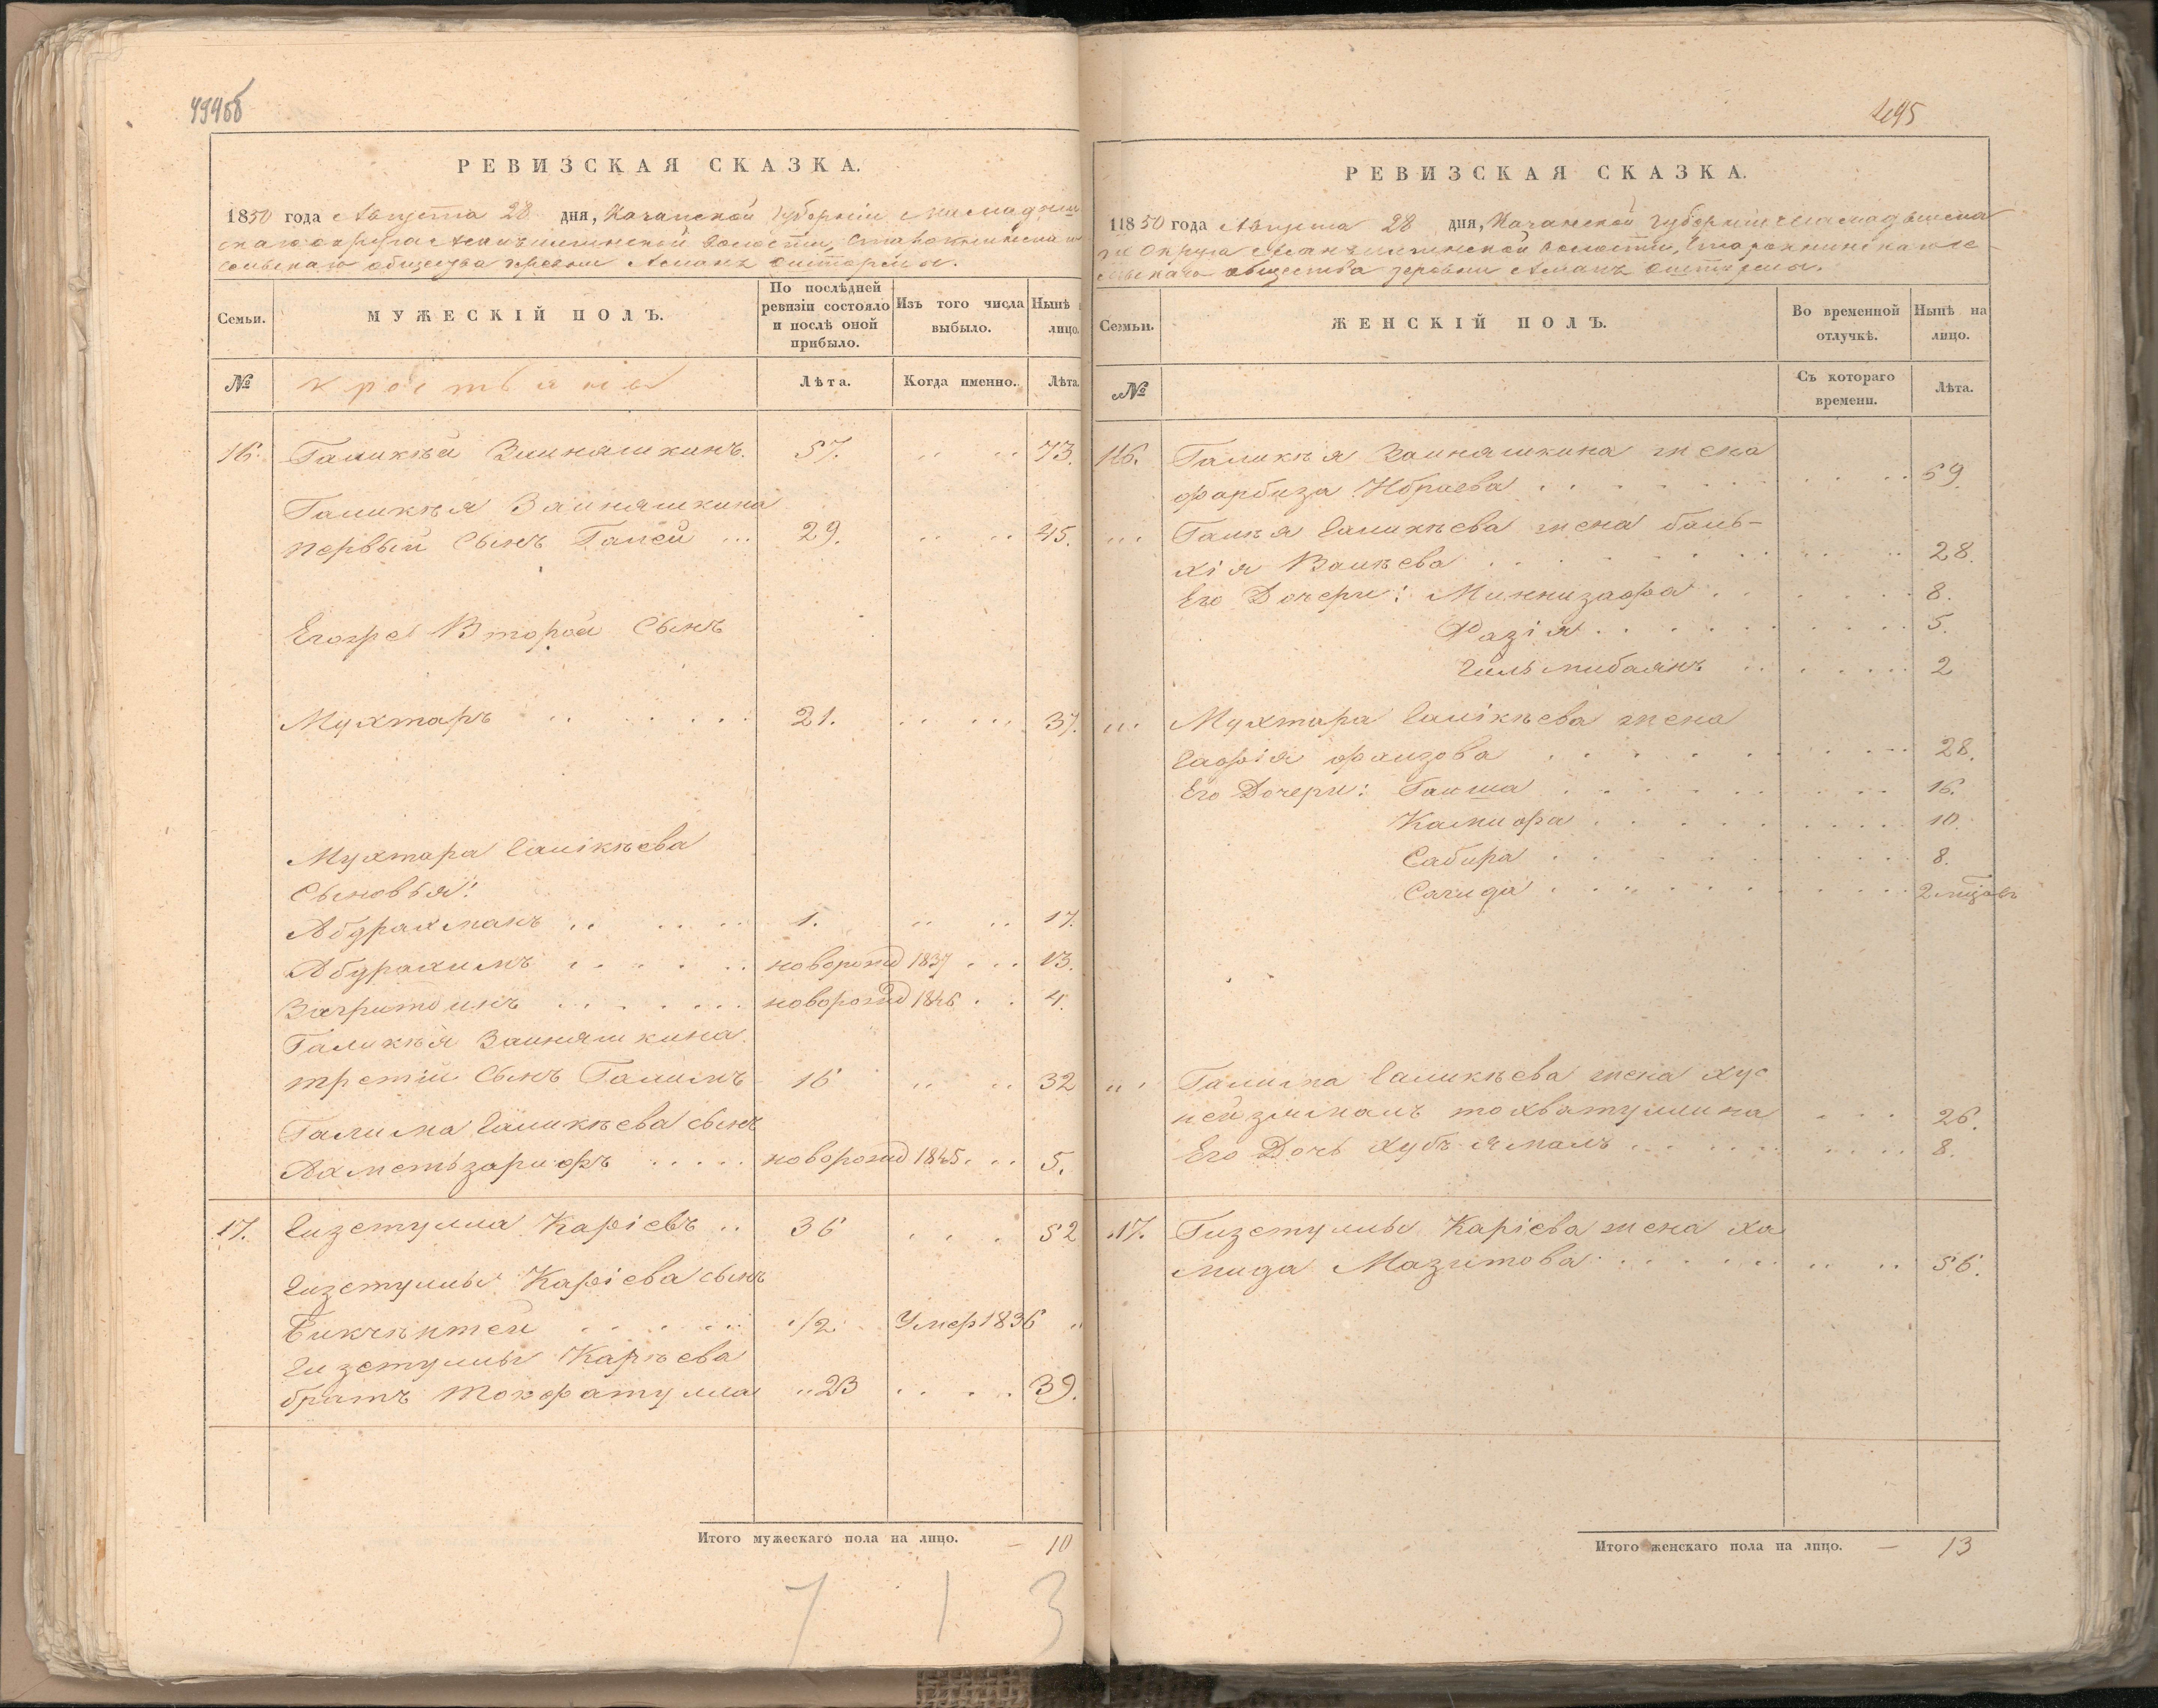 494об
РЕВИЗСКАЯ СКАЗКА.
1850 года Августа 28 дня, Казанской губернии Мамадыш
скаго округа волости,
сельскаго общества деревни Асланъ
Семьи.
МУЖЕСКІЙ ПОЛЪ.
По послѣдней
ревизіи состояло
и послѣ оной
прибыло.
Изъ того числа
выбыло.
Нынѣ
лицо.
№
крестьяне
Лѣта.
Когда именно.
Лѣта.
16. Галикѣй Зайняшкинъ. 57. 73.
Галикѣя Зайняшкина
первый сынъ Галей 29. 45.
Егоже второй сынъ
Мухтаръ 21. 37.
Мухтара Галікѣева
сыновья:
Абдрахманъ 1. 17.
Абдрахимъ новорожд 1837 13.
новорожд 1846 4.
Галикѣя Зайняшкина
третій сынъ Галимъ 16 32
Галима Галикѣева сынъ
Ахметьзарифъ новорожд 1845. 5.
17. Гизетулла Каріевъ 36 52
Гизетуллы Каріева сынъ
Бикчѣнтей 1/2 Умер 1836
Гизетуллы Карѣева
братъ Тохфатулла 23 39.
Итого мужескаго пола на лицо. — 10
7 1 3
495
РЕВИЗСКАЯ СКАЗКА.
11850 года Августа 28 дня, Казанской губерніи Мамадышска
го округа волости,
сельскаго общества деревни Асланъ
Семьи.
ЖЕНСКІЙ ПОЛЪ.
Во временной
отлучкѣ.
Нынѣ на
лицо.
№
Съ котораго
времени.
Лѣта.
16. Галикѣя Зайняшкина жена
Фарбиза Ибраева 59.
Галѣя Галикѣева жена Баль-
хія Валѣева 28.
Его дочери: Миннизафа 8.
Фазія 5.
Гильмибаянъ 2
Мухтара Галікѣева жена
Гафія Фаизова 28.
Его дочери: Гайша 16.
Камифа 10.
Сабира 8.
Сагида 2 мцовъ
Галима Галикѣева жена Хус
Тохватуллина 26.
Его дочь Хубъямалъ 8.
17. Гизетуллы Каріева жена Ха
мида Мазитова 56.
Итого женскаго пола на лицо. — 13